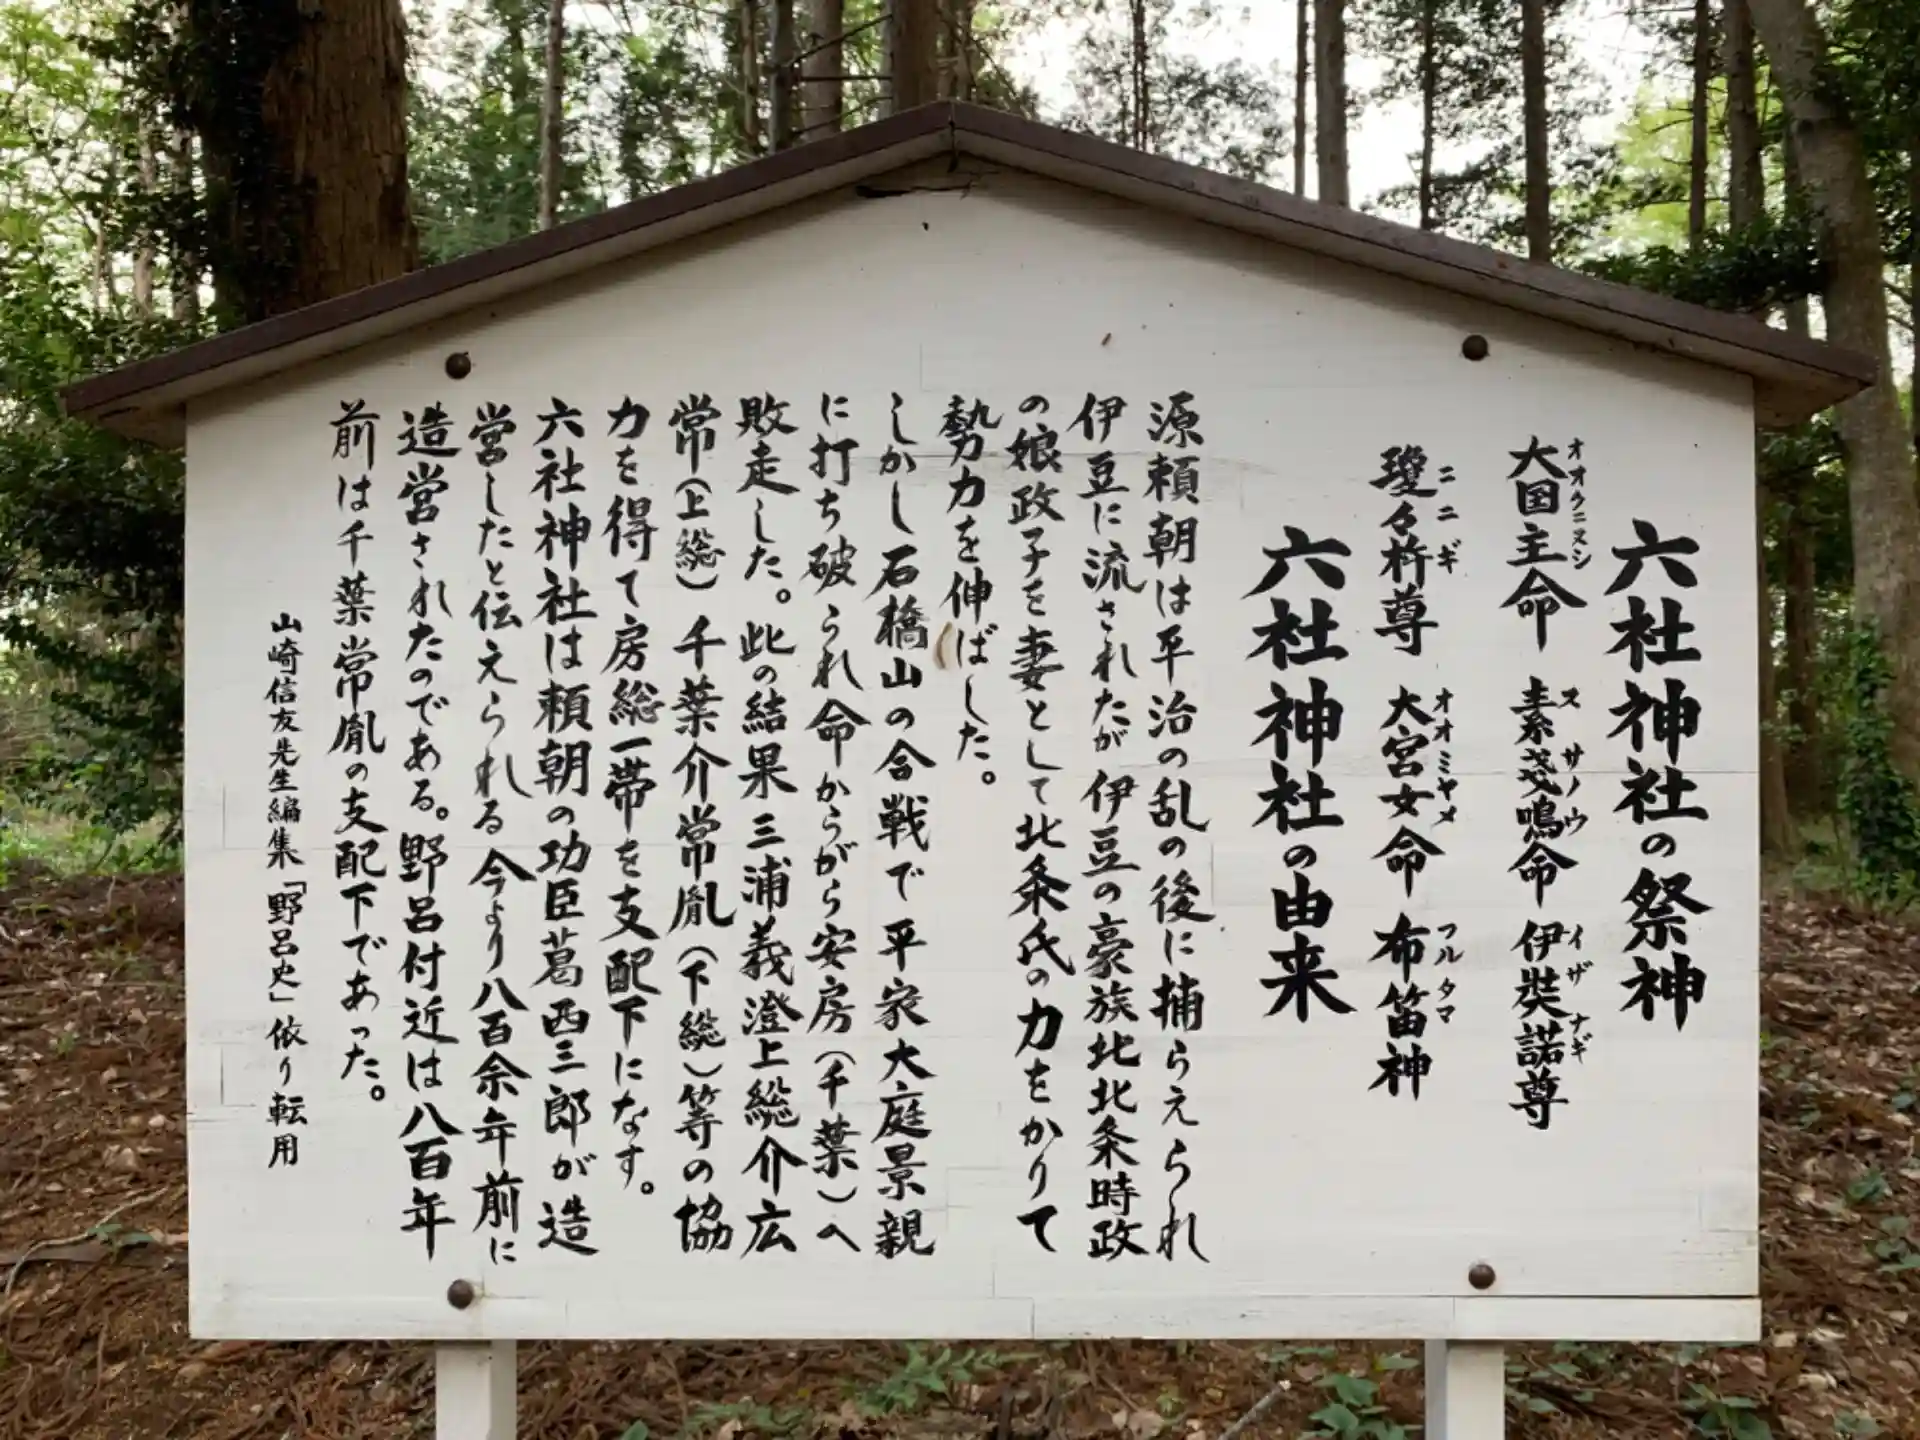 六社神社の祭神
大国主命 素戔鳴命 伊奘諾尊
オオクニヌシ スサノウ イザナギ
瓊々杵尊 大宮女命 布笛神
ニニギ オオミヤメ フルタマ
六社神社の由来
源頼朝は平治の乱の後に捕らえられ
伊豆に流されたが伊豆の豪族北北条時政
の娘政子を妻として北条氏の力をかりて
勢力を伸ばした。
しかし石橋山の合戦で平家大庭景親
に打ち破られ命からがら安房(千葉)へ
敗走した。此の結果三浦義澄上総介広
常(上総)千葉介常胤(下総)等の協
力を得て房総一帯を支配下になす。
六社神社は頼朝の功臣葛西三郎が造
営したと伝えられる今より八百余年前に
造営されたのである。野呂付近は八百年
前は千葉常胤の支配下であった。
山崎信友先生編集「野呂史」依り転用